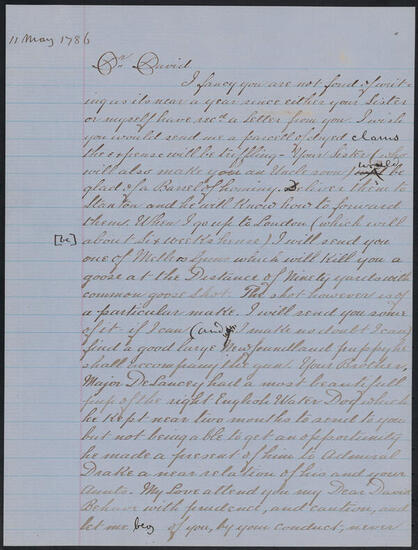 11 May 1786
Dr. David
I fancy you are not fond of writ-
ing as its near a year since either your Sister
or myself have recd a letter from you. I wish
you would send me a parcell of dyed clams
the expense will be triffling - Your Sister (who
will also make you an Uncle soon) would be
glad of a Barrel of hominy. Deliver them to
Stanton and he will know how to forward
them. When I go up to London (which will
[be]
about six weeks hence) I will send you
one of Guns which will kill you a
goose at the Distance of Ninety yards with
common goose shot. The shot however is of
a particular make. I will send you some
of it if I can (and I make no doubt I can
find a good large Newfoundland puppy he
shall accompany the gun. Your Brother,
Major DeLancey had a most beautifull
pup of the right English Water Dog which
he kept near two months to send to you
but not being able to get an opportunity
he made a present of him to Admiral
Drake a near relation of his and your
Aunts. My Love attend you my Dear David
Behave with prudence, and caution, and
let me beg of you, by your conduct, never